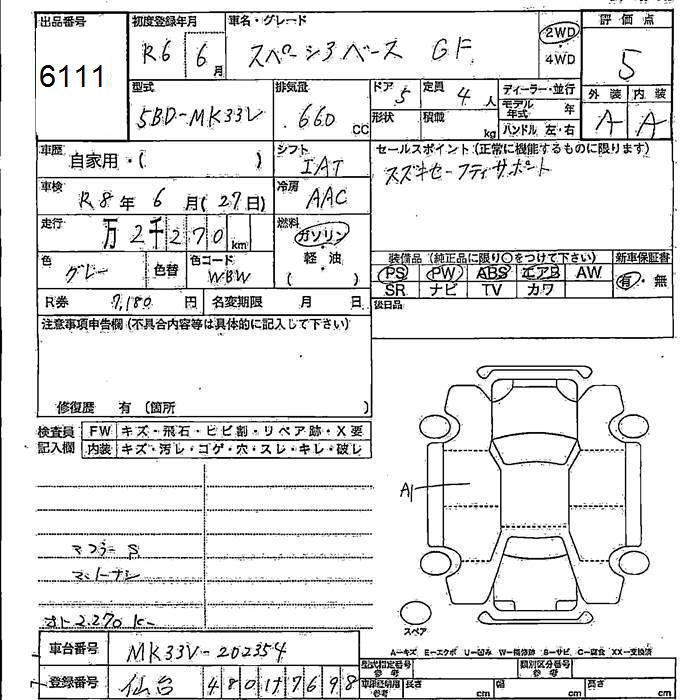 出品番号
6111
初度登録年月
R6 6月
車名・グレード
スペーシアベース GF
2WD
4WD
評価点
5
外装 内装
A A
型式
5BD-MK33V
排気量
660 CC
ドア 5
定員 4人
形状
積載 kg
ディーラー・並行
モデル年式 年
ハンドル 左・右
車歴 自家用・( )
シフト IAT
セールスポイント(正常に機能するものに限ります)
スズキセーフティサポート
車検 R8年 6月(27日)
冷房 AAC
走行 万2千270km
燃料 ガソリン
軽・油
( )
色 グレー
色替
色コード WBW
装備品(純正品に限り○をつけて下さい)
PS PW ABS エアB AW
SR ナビ TV カワ
新車保証書
有・無
R券 7,180円
名変期限 月 日
後日品
注意事項申告欄(不具合内容等は具体的に記入して下さい)
修復歴 有 〔箇所 〕
検査員記入欄
FW キズ・飛石・ヒビ割・リペア跡・X要
内装 キズ・汚レ・コゲ・穴・スレ・キレ・破レ
A1
マフラーS
マットナシ
2,270k
スペア
車台番号 MK33V-202354
登録番号 仙台 480 7698
A-キズ E-エクボ U-凹み W-補修跡 S-サビ C-腐食 XX-交換済
型式指定番号 参考
類別区分番号 参考
車両諸情報 参考 長さ cm 幅 cm 高さ cm